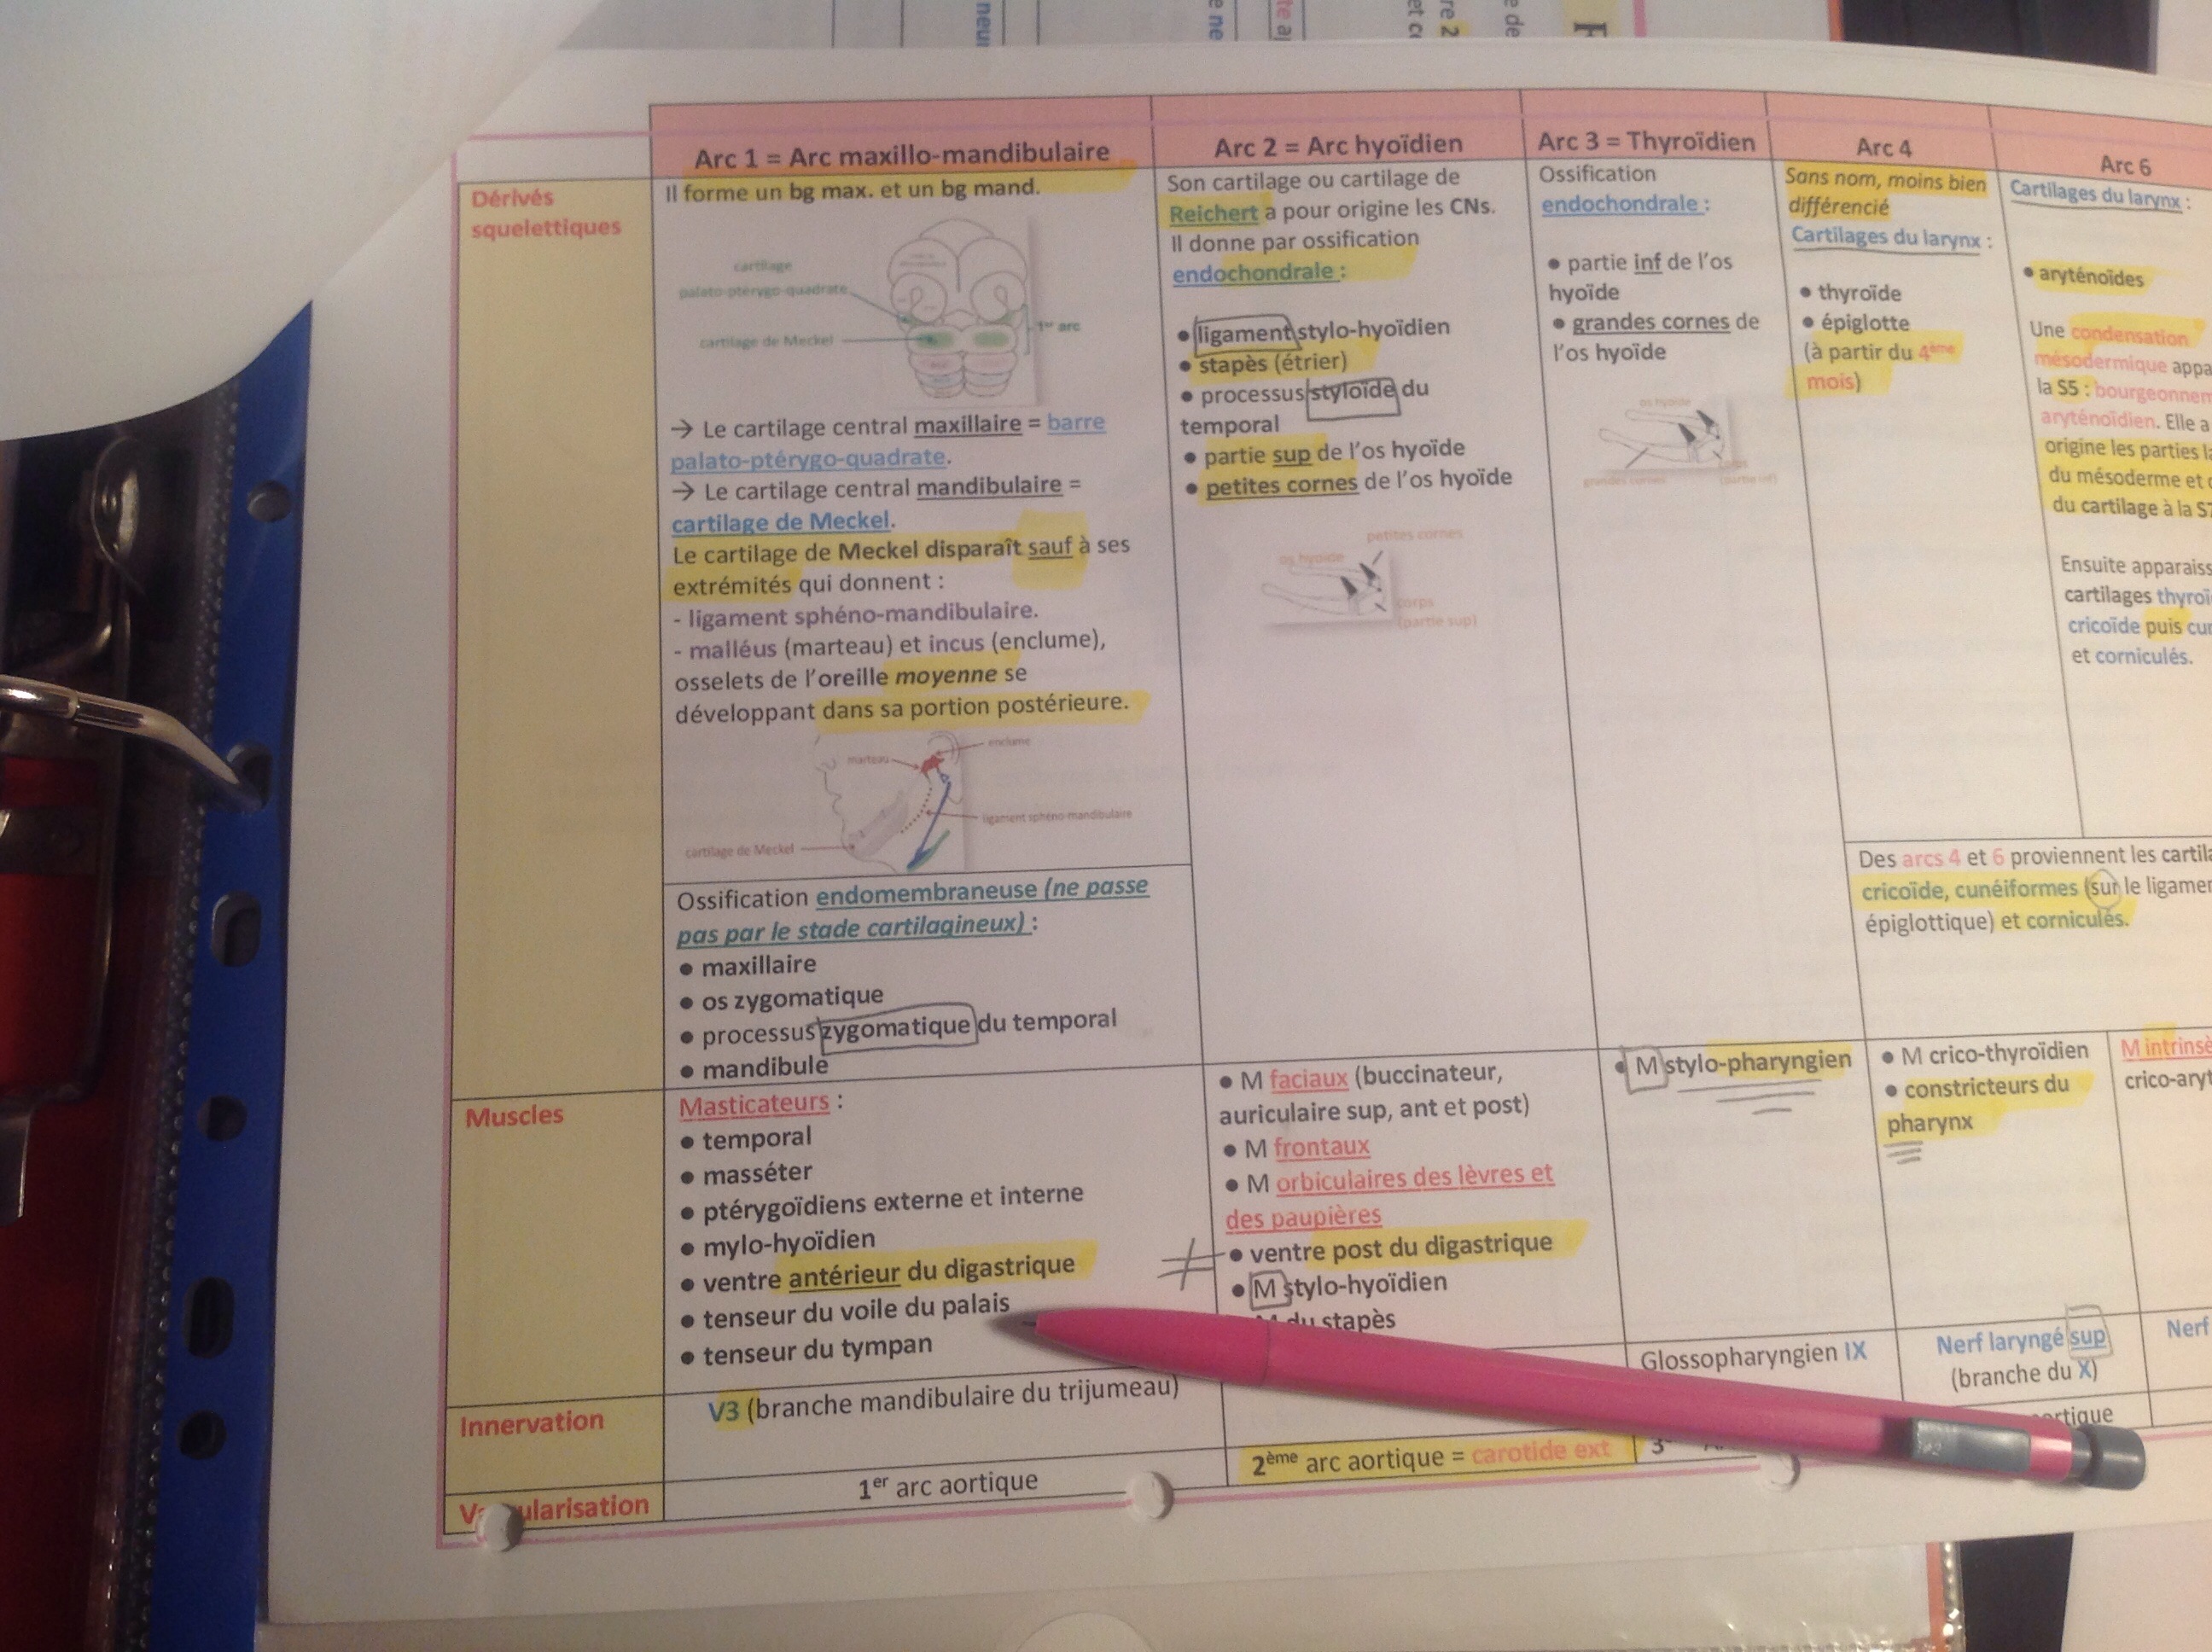 Arc 1 = Arc maxillo-mandibulaire
Arc 2 = Arc hyoïdien
Arc 3 = Thyroïdien
Arc 4
Arc 6
Dérivés
squelettiques
Il forme un bg max. et un bg mand.
cartilage
palato-ptérygo-quadrate
cartilage de Meckel
1er arc
→ Le cartilage central maxillaire = barre
palato-ptérygo-quadrate.
→ Le cartilage central mandibulaire =
cartilage de Meckel.
Le cartilage de Meckel disparaît sauf à ses
extrémités qui donnent :
- ligament sphéno-mandibulaire.
- malléus (marteau) et incus (enclume),
osselets de l'oreille moyenne se
développant dans sa portion postérieure.
enclume
marteau
ligament sphéno-mandibulaire
cartilage de Meckel
Ossification endomembraneuse (ne passe
pas par le stade cartilagineux) :
● maxillaire
● os zygomatique
● processus zygomatique du temporal
● mandibule
Son cartilage ou cartilage de
Reichert a pour origine les CNs.
Il donne par ossification
endochondrale :
● ligament stylo-hyoïdien
● stapès (étrier)
● processus styloïde du
temporal
● partie sup de l'os hyoïde
● petites cornes de l'os hyoïde
petites cornes
os hyoïde
corps
(partie sup)
Ossification
endochondrale :
● partie inf de l'os
hyoïde
● grandes cornes de
l'os hyoïde
os hyoïde
grandes cornes
(partie inf)
Sans nom, moins bien
différencié
Cartilages du larynx :
● thyroïde
● épiglotte
(à partir du 4ème
mois)
Cartilages du larynx :
● aryténoïdes
Une condensation
mésodermique
la S5 :
aryténoïdien. Elle a
origine les parties
du mésoderme et
du cartilage à la
Ensuite
cartilages
cricoïde puis
et corniculés.
Des arcs 4 et 6 proviennent les
cricoïde, cunéiformes (sur le
épiglottique) et corniculés.
Muscles
Masticateurs :
● temporal
● masséter
● ptérygoïdiens externe et interne
● mylo-hyoïdien
● ventre antérieur du digastrique
● tenseur du voile du palais
● tenseur du tympan
● M faciaux (buccinateur,
auriculaire sup, ant et post)
● M frontaux
● M orbiculaires des lèvres et
des paupières
≠ ● ventre post du digastrique
● M stylo-hyoïdien
M du stapès
● M stylo-pharyngien
● M crico-thyroïdien
● constricteurs du
pharynx
M
Innervation
V3 (branche mandibulaire du trijumeau)
Glossopharyngien IX
Nerf laryngé sup
(branche du X)
Nerf
Vascularisation
1er arc aortique
2ème arc aortique = carotide ext